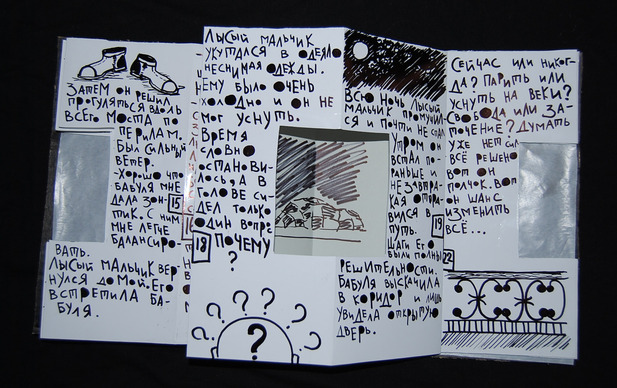 ЗАТЕМ ОН РЕШИЛ
ПРОГУЛЯТЬСЯ ВДОЛЬ
ВСЕГО МОСТА ПО
ПЕРИЛАМ.
БЫЛ СИЛЬНЫЙ
ВЕТЕР.
-ХОРОШО ЧТО
БАБУЛЯ МНЕ
ДАЛА ЗОН-
ТИК. С НИМ
МНЕ ЛЕГЧЕ
БАЛАНСИРО-
ВАТЬ.
ЛЫСЫЙ МАЛЬЧИК ВЕР-
НУЛСЯ ДОМОЙ. ЕГО
ВСТРЕТИЛА БА-
БУЛЯ.
15
ЛЫСЫЙ МАЛЬЧИК
УКУТАЛСЯ В ОДЕЯЛО
НЕСНИМАЯ ОДЕЖДЫ.
ЕМУ БЫЛО ОЧЕНЬ
ХОЛОДНО И ОН НЕ
МОГ УСНУТЬ.
ВРЕМЯ
СЛОВНО
ОСТАНОВИ-
ЛОСЬ, А В
ГОЛОВЕ СИ-
ДЕЛ ТОЛЬКО
ОДИН ВОПРС
18 ПОЧЕМУ
?
? ? ? ? ? ?
?
ВСЮ НОЧЬ ЛЫСЫЙ
МАЛЬЧИК ПРОМУЧИЛ-
СЯ И ПОЧТИ НЕ СПАЛ
УТРОМ ОН
ВСТАЛ ПО-
РАНЬШЕ И
НЕ ЗАВТРА-
КАЯ ОТПРА-
ВИЛСЯ В
ПУТЬ.
ШАГИ ЕГО
БЫЛИ ПОЛНЫ
РЕШИТЕЛЬНОСТИ.
БАБУЛЯ ВЫСКАЧИЛА
В КОРИДОР И ЛИШЬ
УВИДЕЛА ОТКРЫТУЮ
ДВЕРЬ.
19
СЕЙЧАС ИЛИ НИКОГ-
ДА? ПАРИТЬ ИЛИ
УСНУТЬ НА ВЕКИ?
СВОБОДА ИЛИ ЗА-
ТОЧЕНИЕ? ДУМАТЬ
УЖЕ НЕТ СИЛ
ВСЁ РЕШЕНО
ВОТ ОН
ТОЛЧОК. ВОТ
ОН ШАНС
ИЗМЕНИТЬ
ВСЁ...
22